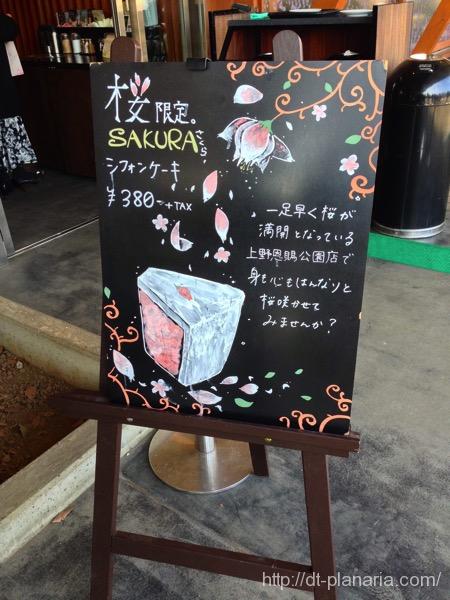 桜限定。
SAKURA さくら
シフォンケーキ
¥380-+TAX
一足早く桜が
満開となっている
上野恩賜公園店で
身も心もはんなりと
桜咲かせて
みませんか?
http://dt-planaria.com/